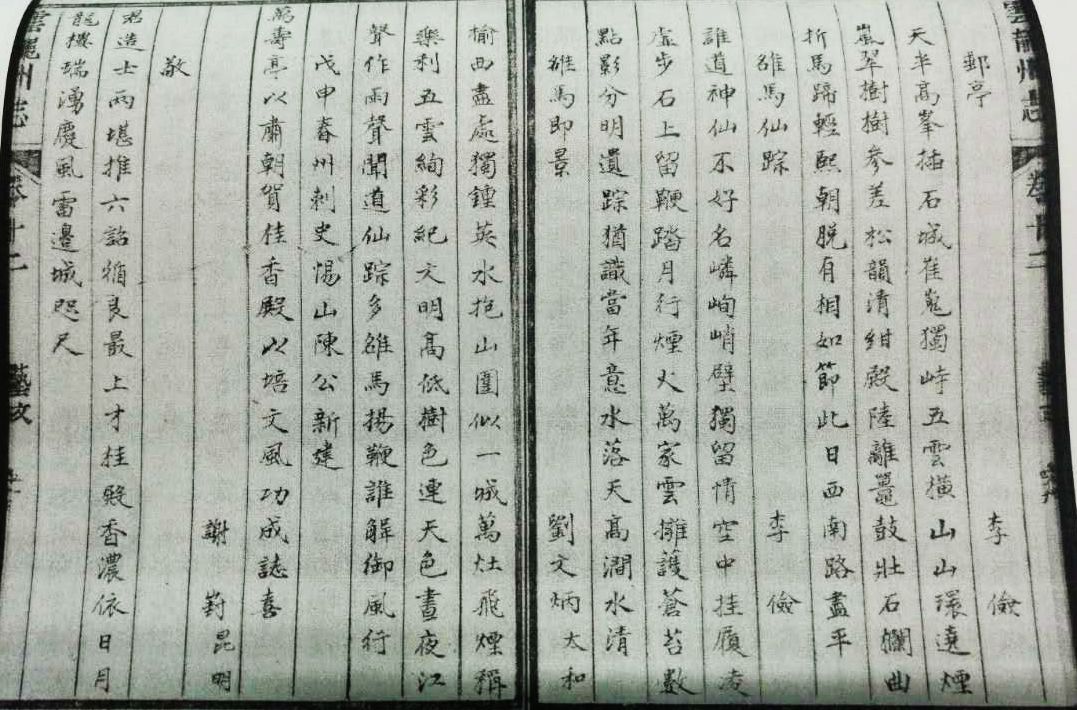 雲龍州志 卷十二 藝文
郵亭 李儉
天半高峯插石城崔嵬獨峙五雲橫山山環遶煙
嵐翠樹樹參差松韻清紺殿陸離鼉鼓壯石欄曲
折馬蹄輕熙朝脫有相如節此日西南路盡平
雒馬仙踪 李儉
誰道神仙不好名嶙峋峭壁獨留情空中挂履凌
虛步石上留鞭踏月行煙火萬家雲擁護蒼苔數
點影分明遺踪猶識當年意水落天高澗水清
雒馬即景 劉文炳 太和
榆西盡處獨鍾英水抱山圍似一城萬灶飛煙稱
樂利五雲絢彩紀文明高低樹色連天色晝夜江
聲作雨聲聞道仙踪多雒馬揚鞭誰解御風行
戊申春州刺史惕山陳公新建
萬壽亭以肅朝賀桂香殿以培文風功成誌喜
謝 昆明
敬
君造士兩堪推六詔循良最上才桂殿香濃依日月
龍樓瑞湧慶風雷邊城咫尺
雲龍州志 卷十二 藝文